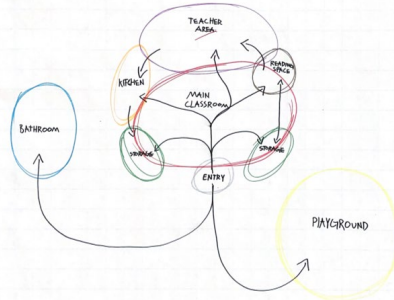 TEACHER
AREA
READING
SPACE
KITCHEN
MAIN
CLASSROOM
BATHROOM
STORAGE
STORAGE
ENTRY
PLAYGROUND